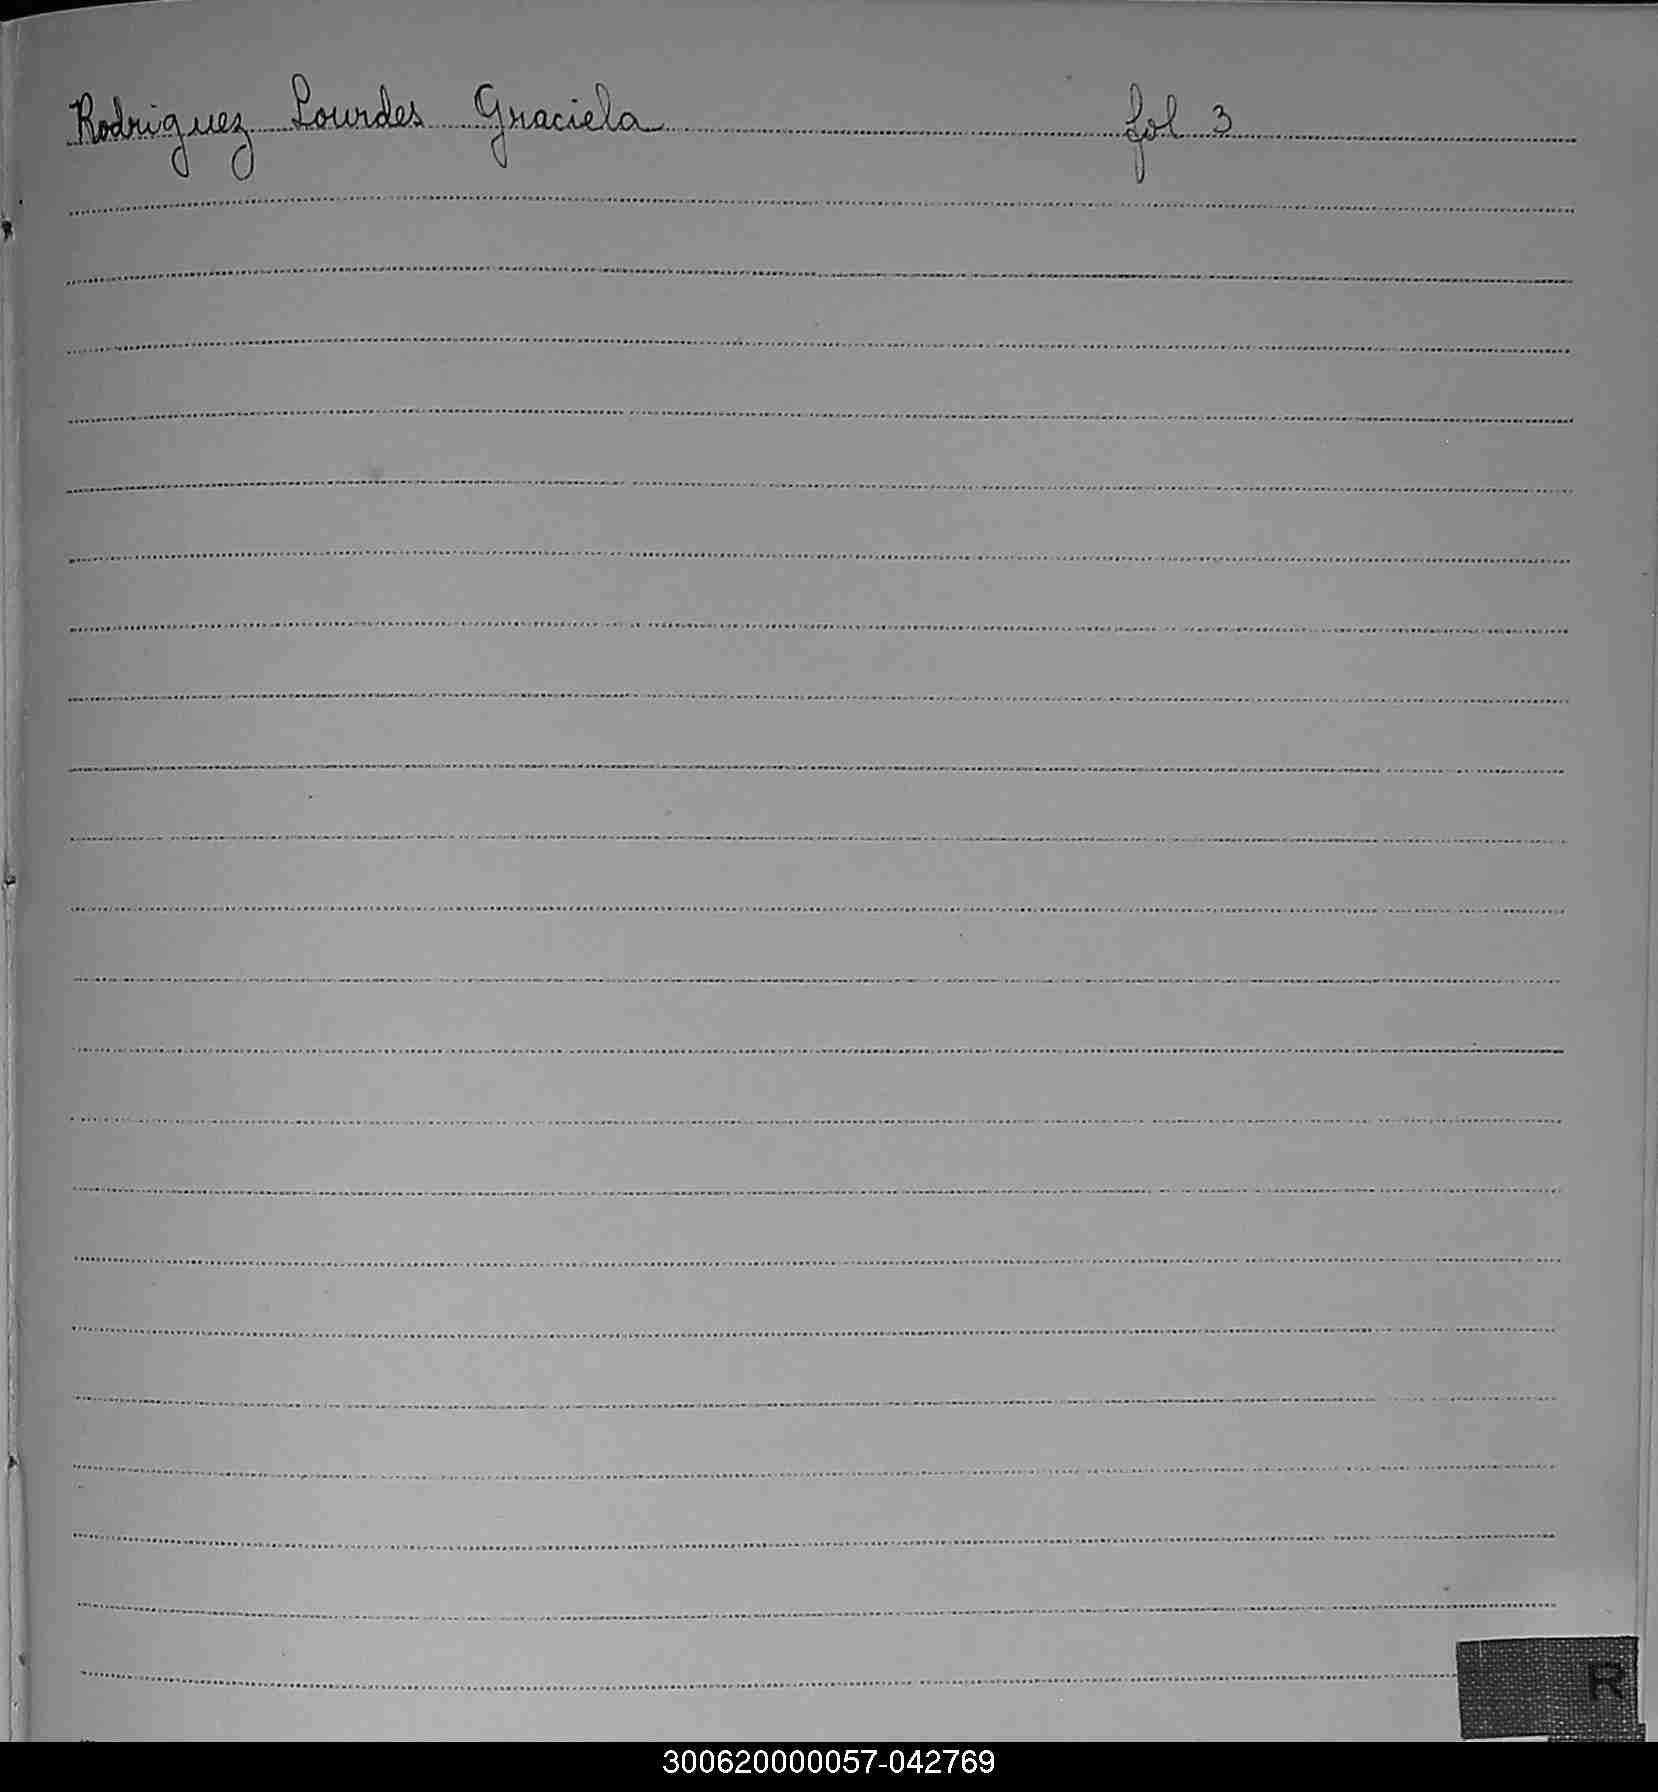 Rodriguez Lourdes Graciela fol 3
R
300620000057-042769